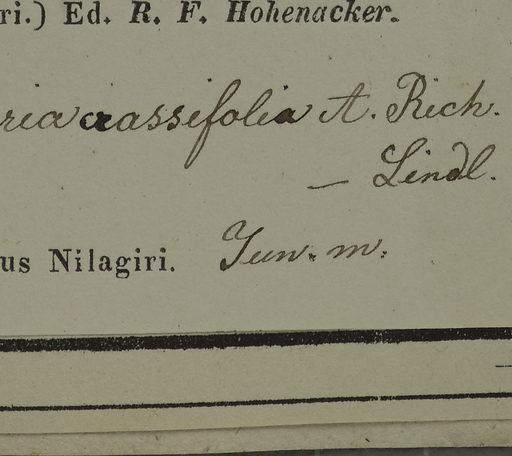 ri.) Ed. R. F. Hohenacker.
ria crassifolia A. Rich.
— Lindl.
us Nilagiri. Jun. m.